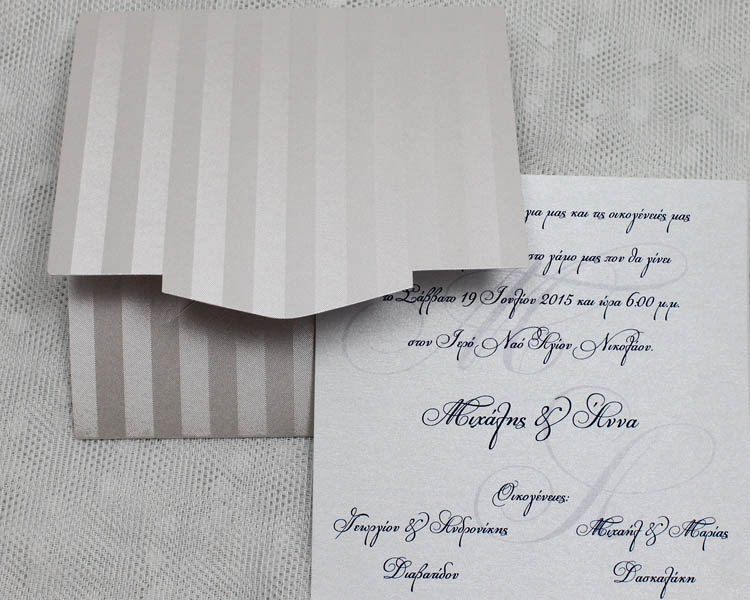 για μας και τις οικογένειές μας
στο γάμο μας που θα γίνει
το Σάββατο 19 Ιουλίου 2015 και ώρα 6.00 μ.μ.
στον Ιερό Ναό Αγίου Νικολάου.
Μιχάλης & Άννα
Οικογένειες:
Γεωργίου & Ανδρονίκης
Μιχαήλ & Μαρίας
Διαβατίδου
Δασκαλάκη